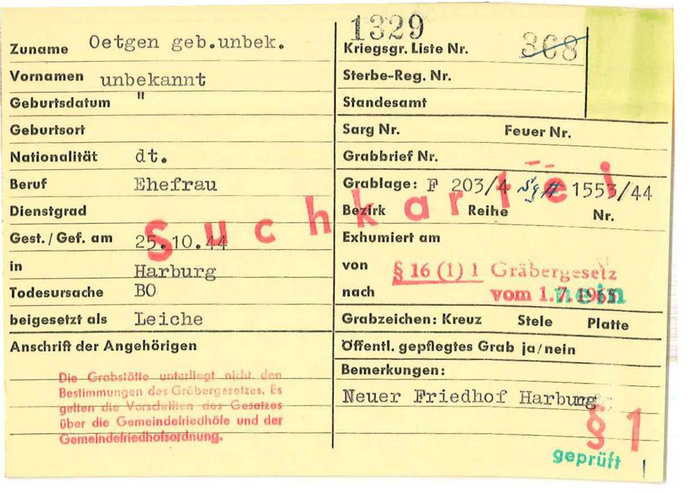 Zuname Oetgen geb.unbek.
Vornamen unbekannt
Geburtsdatum "
Geburtsort
Nationalität dt.
Beruf Ehefrau
Dienstgrad
Gest./Gef. am 25.10.44
in Harburg
Todesursache BO
beigesetzt als Leiche
Anschrift der Angehörigen
Die Grabstätte unterliegt nicht den
Bestimmungen des Gräbergesetzes. Es
gelten die Vorschriften des Gesetzes
über die Gemeindefriedhöfe und der
Gemeindefriedhofsordnung.
Suchkartei
1329
Kriegsgr. Liste Nr. 368
Sterbe-Reg. Nr.
Standesamt
Sarg Nr. Feuer Nr.
Grabbrief Nr.
Grablage: F 203/4 1553/44
Bezirk Reihe Nr.
Exhumiert am
von § 16 (1) 1 Gräbergesetz
nach vom 1.7.1965 nein
Grabzeichen: Kreuz Stele Platte
Öffentl. gepflegtes Grab ja/nein
Bemerkungen:
Neuer Friedhof Harburg
§ 1
geprüft